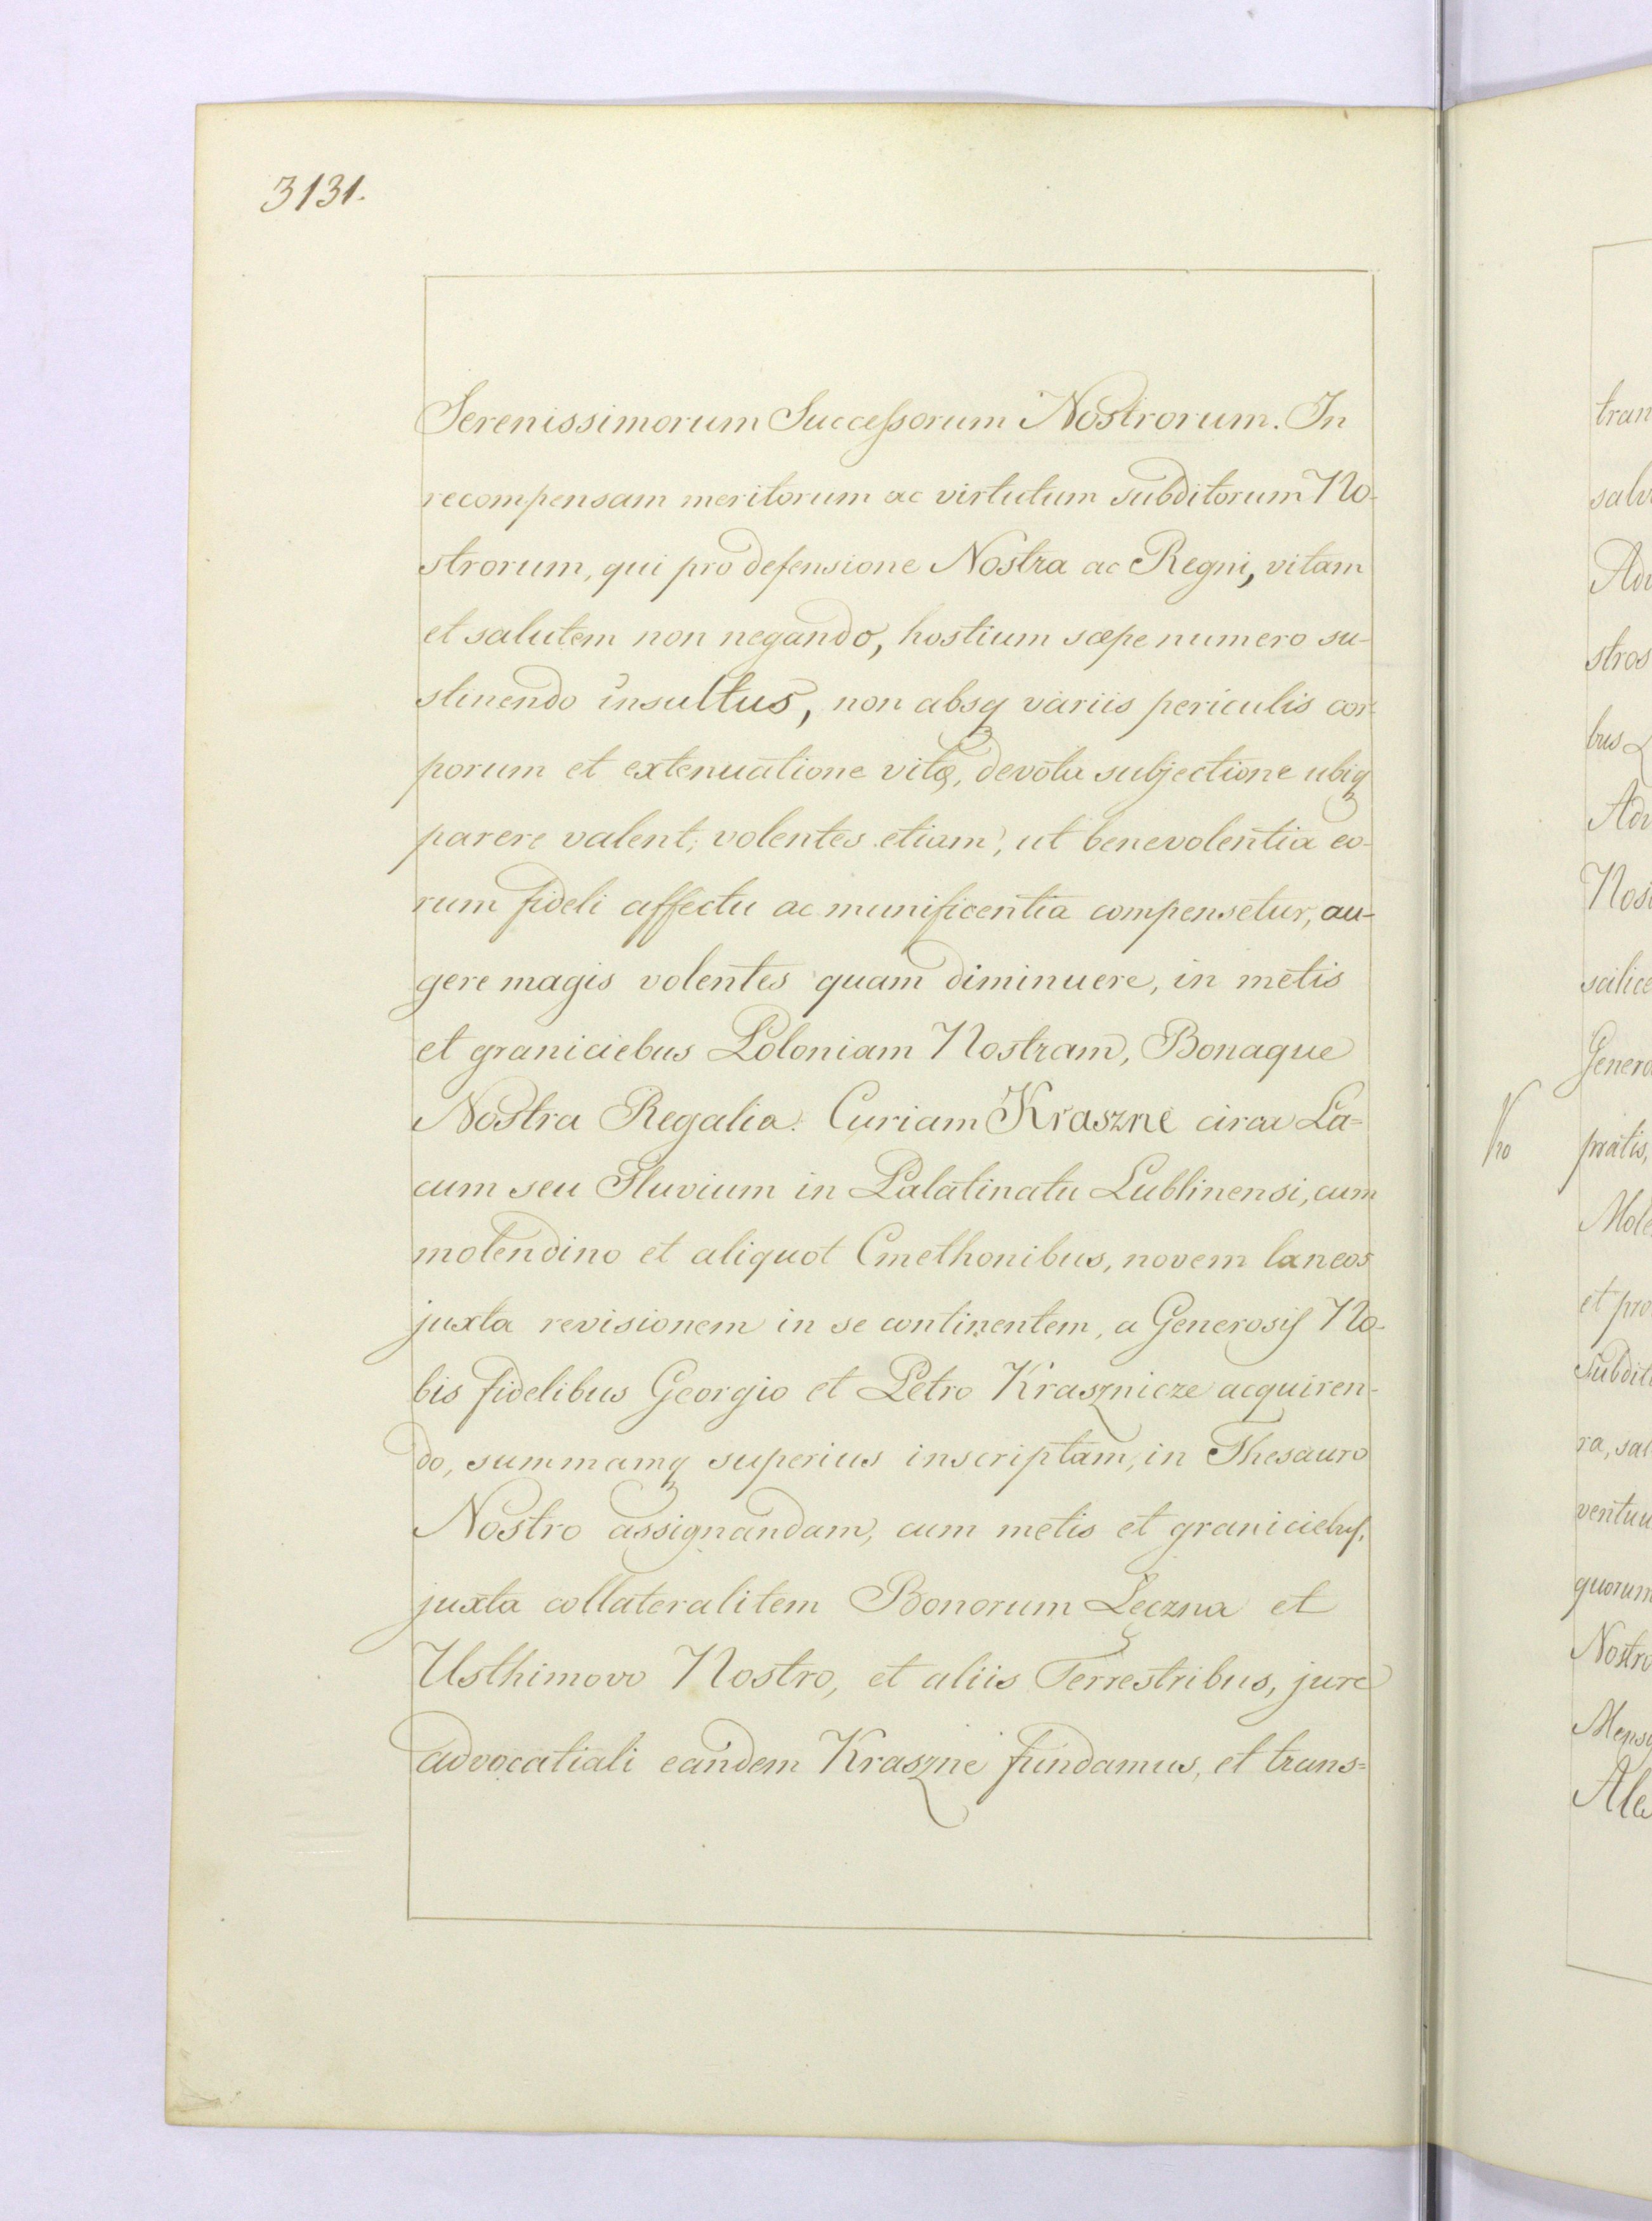 3131.
Serenissimorum Successorum Nostrorum. In
recompensam meritorum ac virtutum subditorum No-
strorum, qui pro defensione Nostra ac Regni, vitam
et salutem non negando, hostium sæpe numero su-
stinendo insultus, non absq variis periculis cor-
porum et extenuatione vitę, devota subjectione ubiq
parere valent; volentes etiam, ut benevolentia eo-
rum fideli affectu ac munificentia compensetur, au-
gere magis volentes quam diminuere, in metis
et graniciebus Poloniam Nostram, Bonaque
Nostra Regalia. Curiam Kraszne circa La=
cum seu Fluvium in Palatinatu Lublinensi, cum
molendino et aliquot Cmethonibus, novem laneos
juxta revisionem in se continentem, a Generosis No-
bis fidelibus Georgio et Petro Krasznicze acquiren-
do, summamq superius inscriptam, in Thesauro
Nostro assignandam, cum metis et graniciebus,
juxta collateralitem Bonorum Lęczna et
Usthimovo Nostro, et aliis Terrestribus, jure
advocatiali eandem Kraszne fundamus, et trans=
tran
salv
Adv
stros
bus
Adv
Nost
salice
Genero
No
pratis,
Mole
et pro
Subdit
ra, sal
ventuu
quorum
Nostro
Mensq
Ale